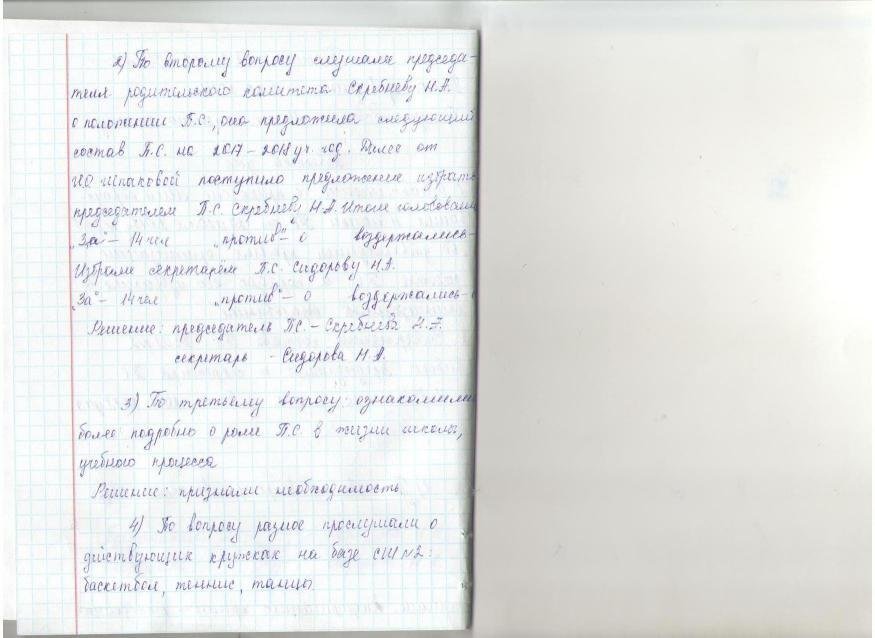 2) По второму вопросу слушали председа-
теля родительского комитета Скребневу Н.А.
о положении П.С., она предложила следующий
состав П.С. на 2017-2018 уч. год. Далее от
Шпаковой поступило предложение избрать
председателем П.С. Скребневу Н.А. Итоги голосовани
"За" - 14 чел "против" - 0 воздержались -
Избрали секретарём П.С. Сидорову Н.А.
"За" - 14 чел "против" - 0 воздержались -
Решение: председатель П.С. - Скребнева Н.А.
секретарь - Сидорова Н.А.
3) По третьему вопросу: ознакомили
более подробно о роли П.С. в жизни школы,
учебного процесса
Решение: признали необходимость.
4) По вопросу разное прослушали о
действующих кружках на базе СШ №2:
баскетбол, теннис, танцы.